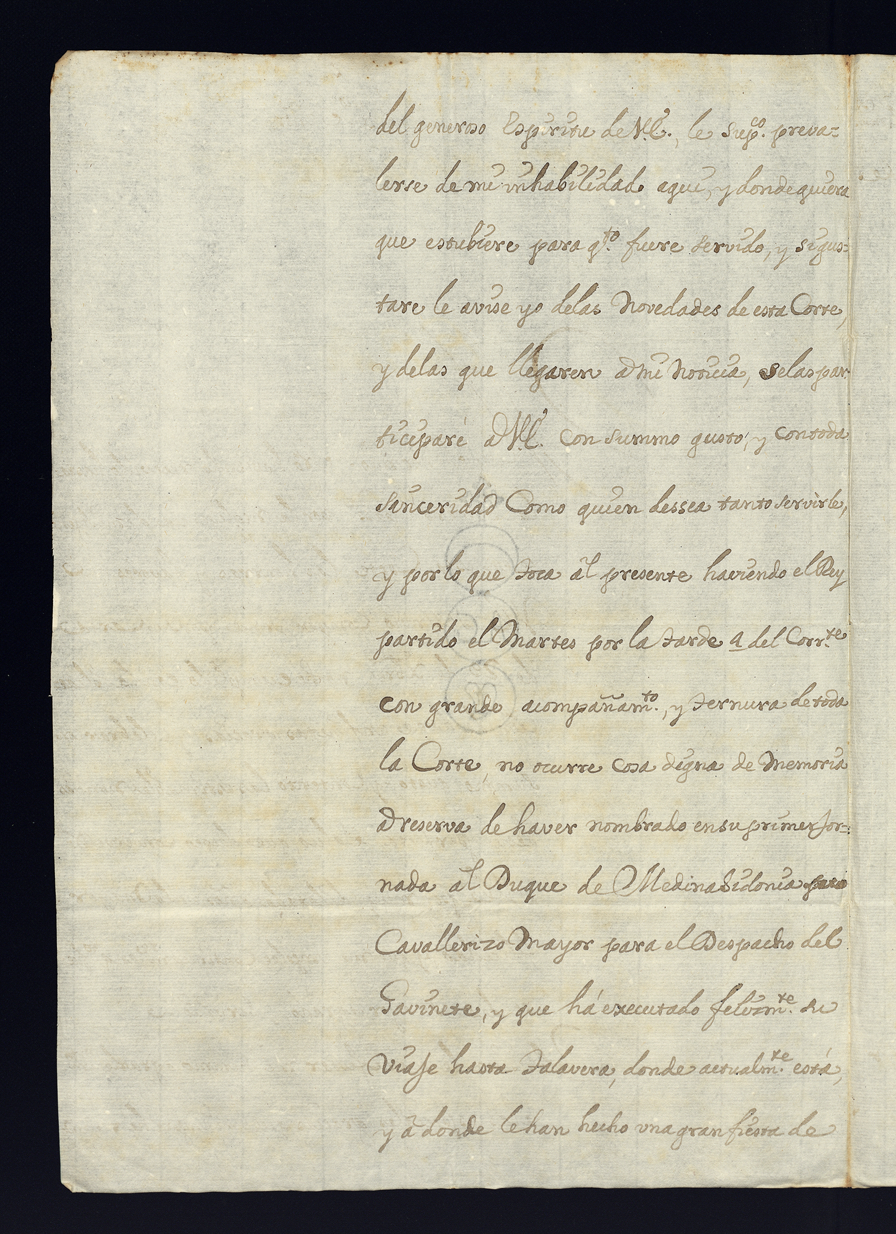 del generoso Espiritu de V.E., le sup.co preva=
lerse de mi inhabilidad aqui, y dondequiera
que estubiere para q.to fuere servido, y sigus=
tare le avise yo delas Novedades de esta Corte,
y delas que llegaren à mi Noticia, selas par
ticiparé à V.E. con summo gusto, y contoda
sinceridad Como quien dessea tanto servirle,
y por lo que toca al presente haviendo el Rey
partido el Martes por la tarde 4 del Corr.te
con grande acompañam.to, y ternura de toda
la Corte, no ocurre cosa digna de Memoria
à reserva de haver nombrado ensu primer Jor=
nada al Duque de Medinasidonia
Cavallerizo Mayor para el Despacho del
Gavinete, y que há executado felizm.te su
Viaje hasta Talavera, donde actualm.te está,
y à donde le han hecho una gran fiesta de